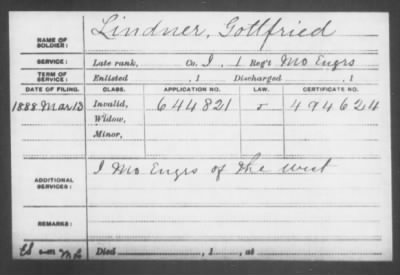 NAME OF SOLDIER: Lindner, Gottfried
SERVICE: Late rank, Co. I, 1 Reg't Mo Engrs
TERM OF SERVICE: Enlisted , 1 Discharged , 1
DATE OF FILING. CLASS. APPLICATION NO. LAW. CERTIFICATE NO.
1888 Mar 13 Invalid, 644821 494624
Widow,
Minor,
ADDITIONAL SERVICES: I Mo Engrs of the west
REMARKS:
Died , 1 , at